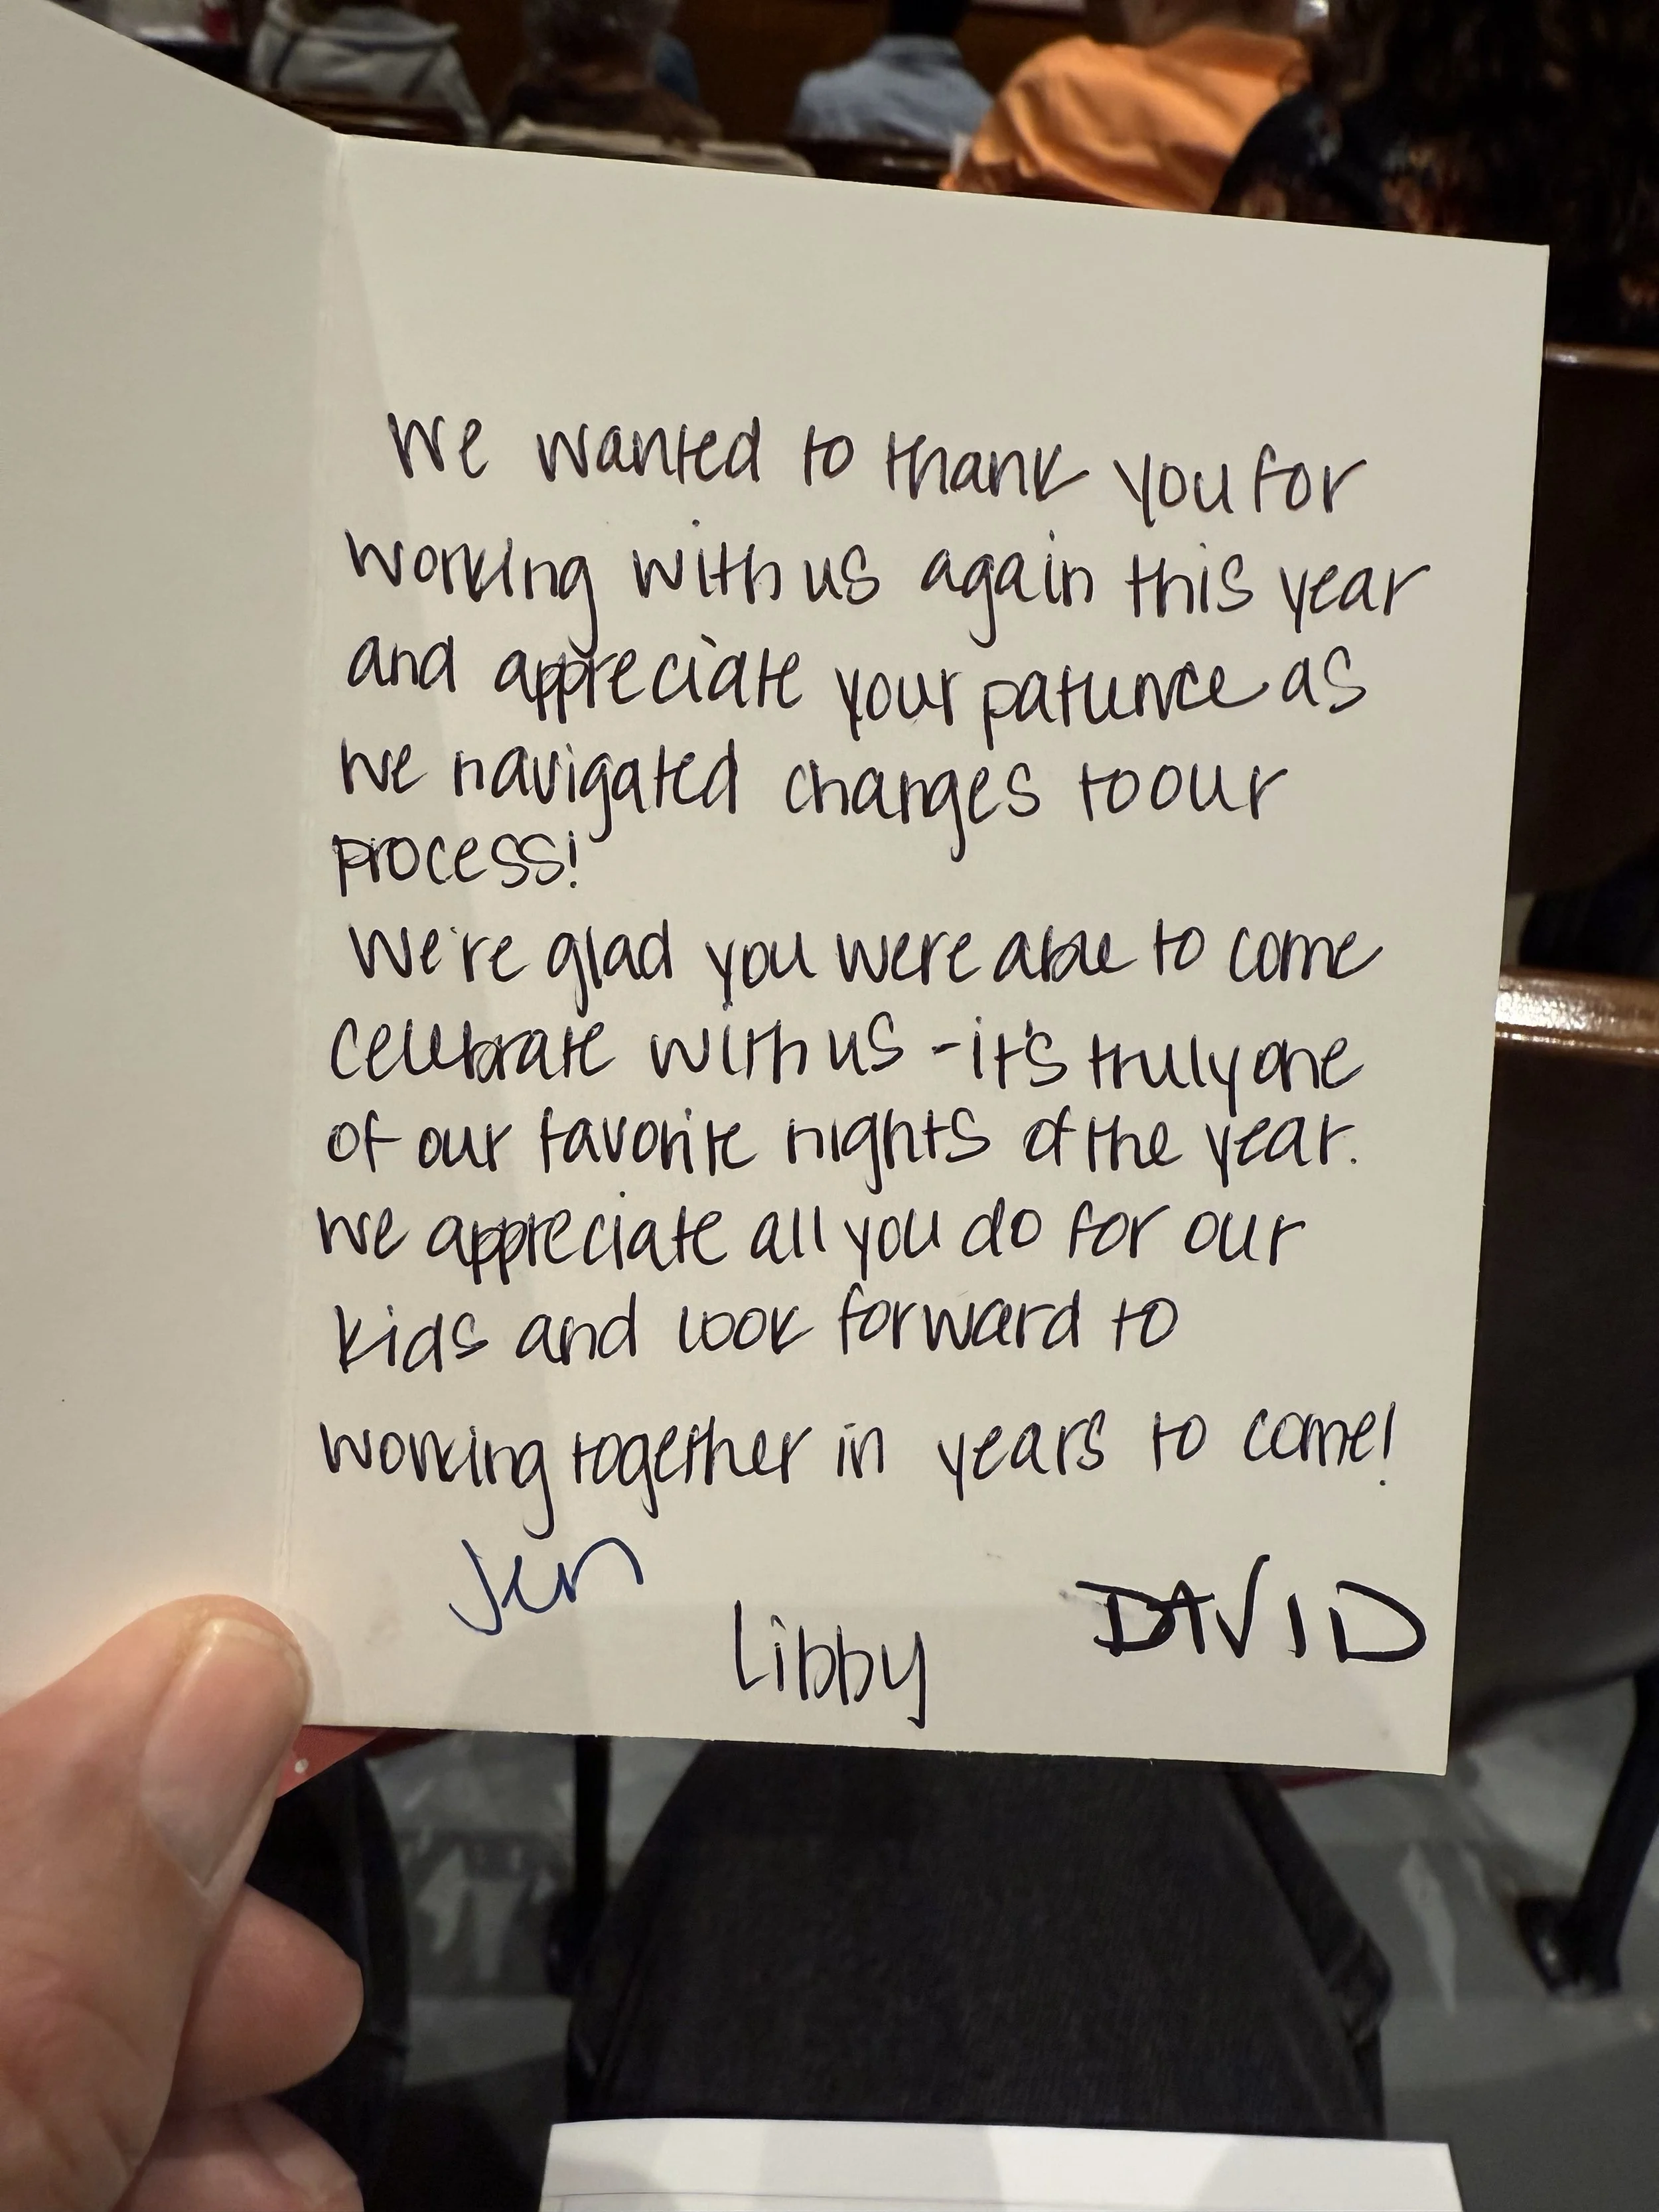 We wanted to thank you for
working with us again this year
and appreciate your patience as
we navigated changes to our
process!
We're glad you were able to come
celebrate with us - it's truly one
of our favorite nights of the year.
We appreciate all you do for our
kids and look forward to
working together in years to come!
Jen
Libby
DAVID